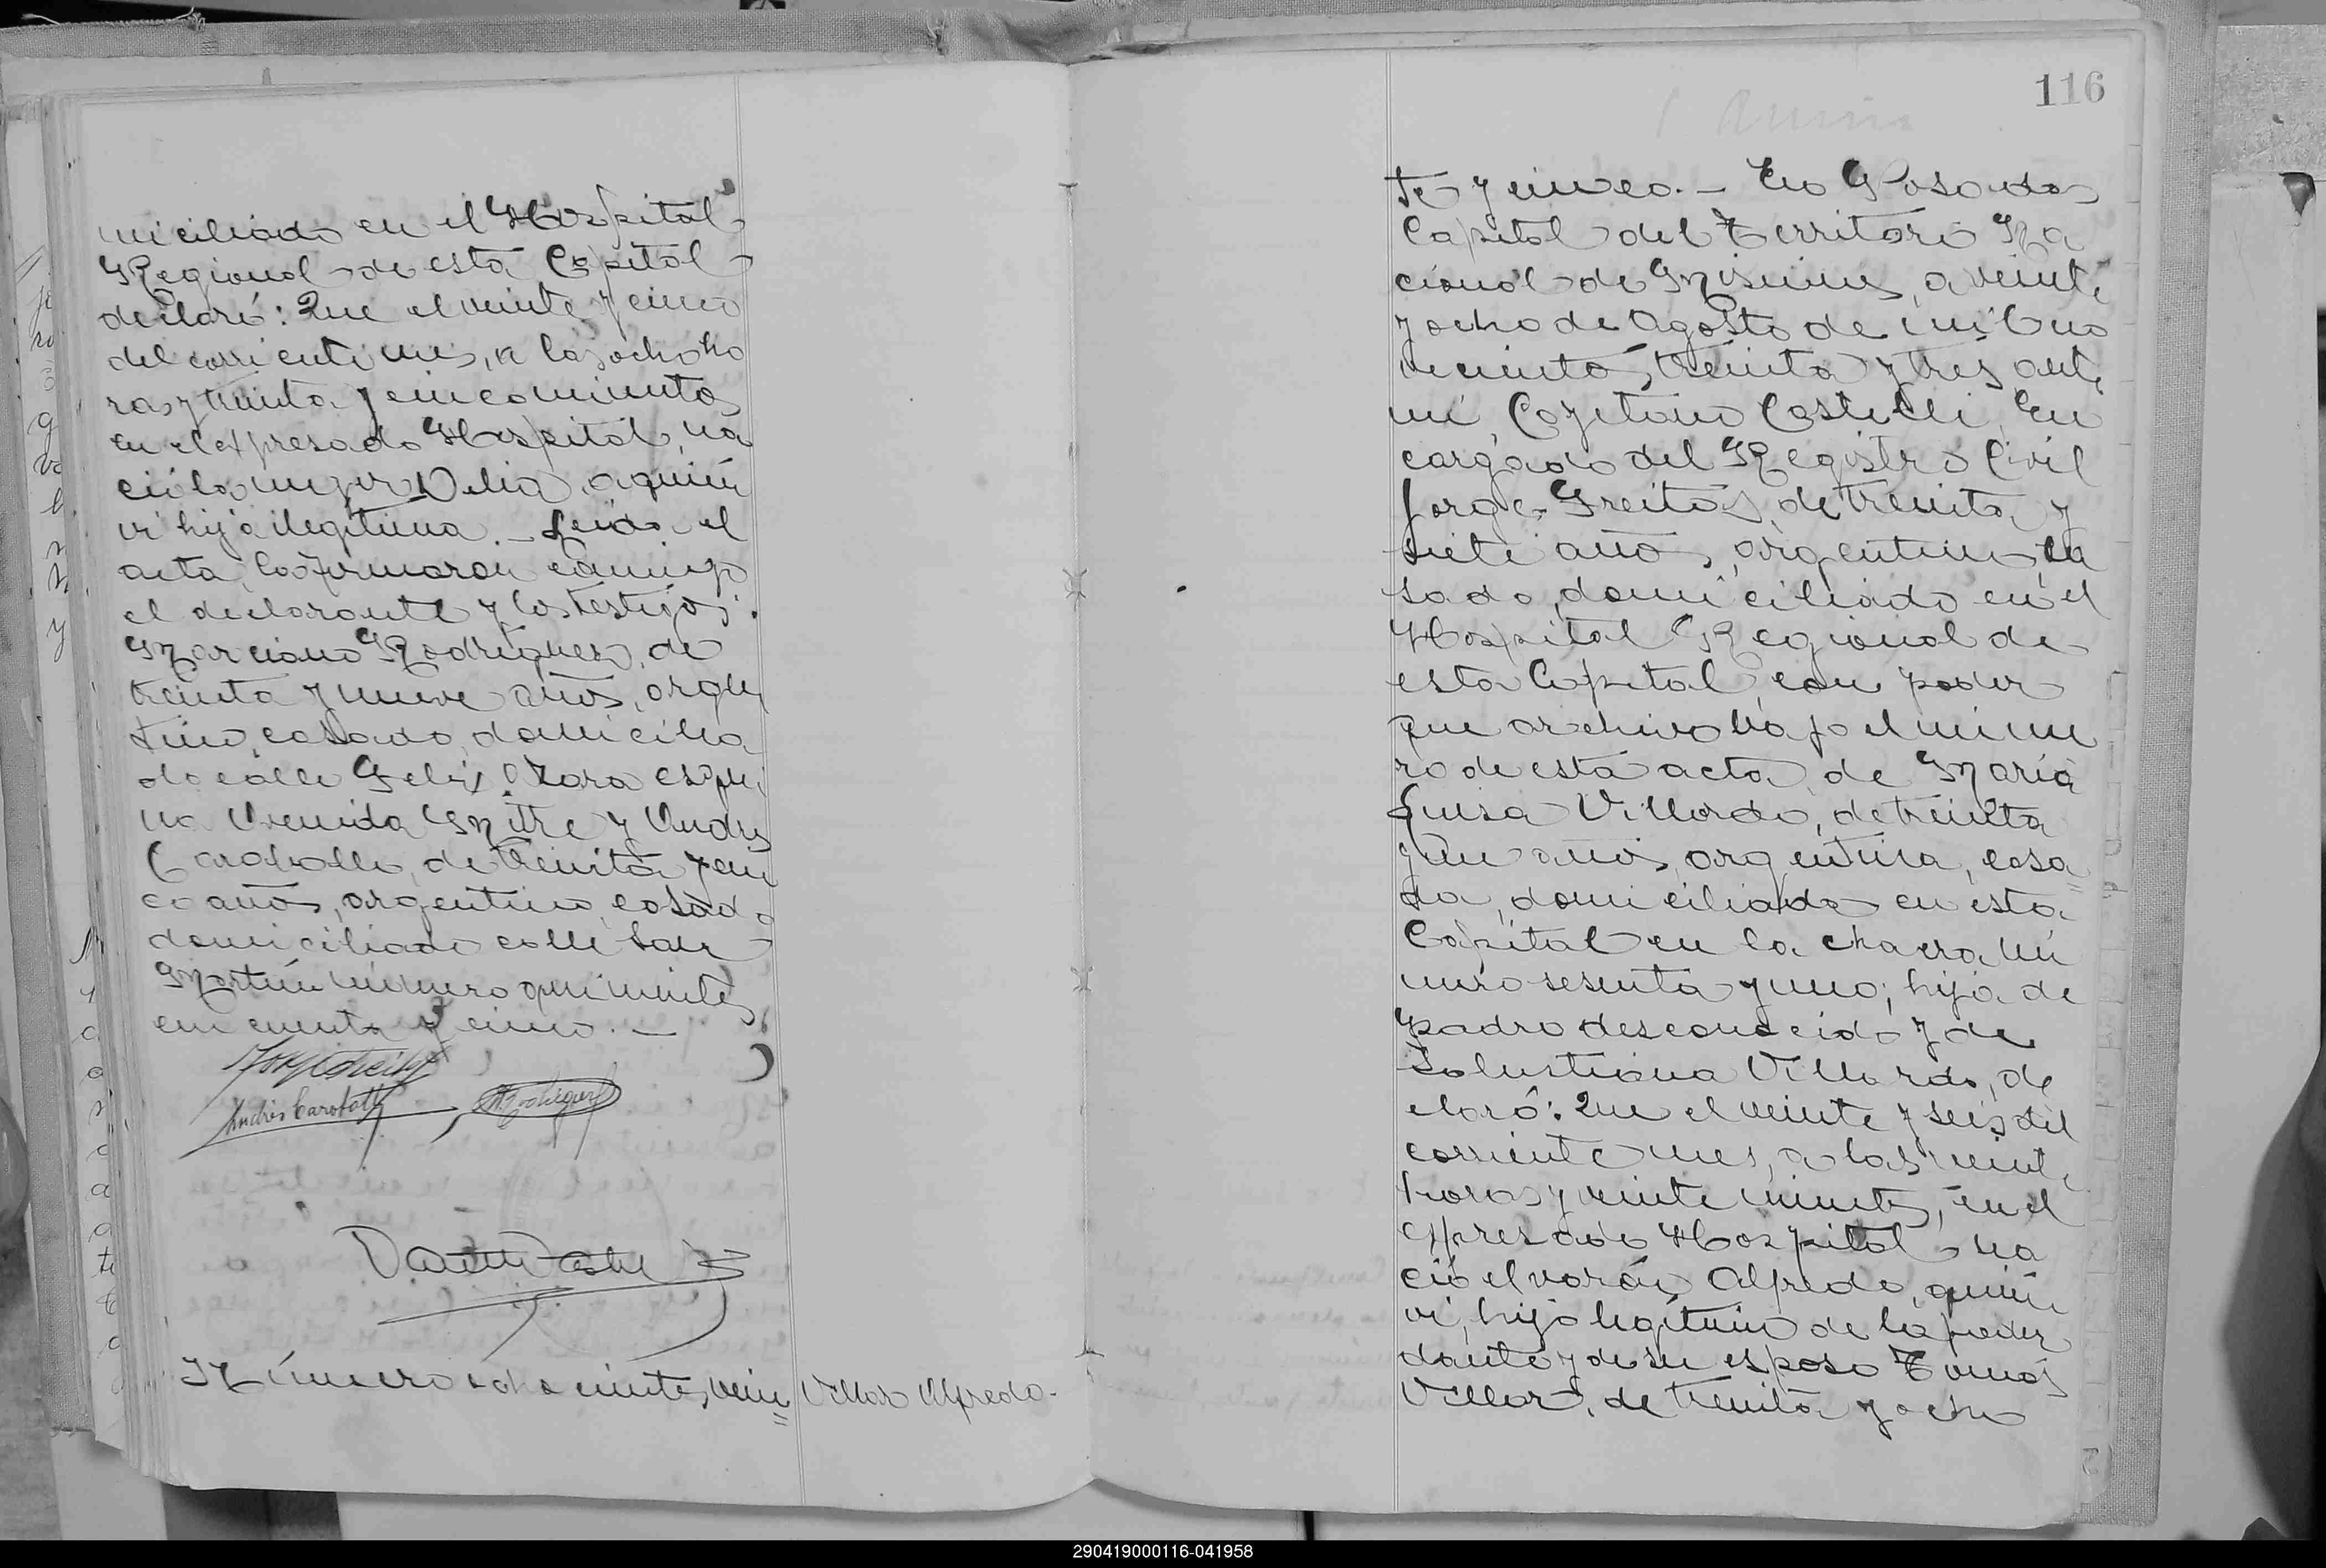 miciliado en el Hospital
Regional de esta Capital
declaró: Que el veinte y cinco
del corriente mes, a las ocho ho
ras y treinta y cinco minutos
en el expresado Hospital, na
ció la mujer Delia, a quien
vi hija ilegítima. – Leida el
acta, la firmaron conmigo
el declarante y los testigos:
Marciano Rodriguez, de
treinta y nueve años, argen
tino, casado, domicilia
do calle Felix Azara esqui
na Avenida Mitre y Andres
Caraballo, de treinta y cin
co años, argentino, casado
domiciliado calle San
Martin número quinientos
cincuenta y cinco. –
Número ochocientos vein
Villar Alfredo.
116
te y cinco. – En Posadas
Capital del Territorio Na
cional de Misiones, a veinte
y ocho de Agosto de mil no
vecientos treinta y tres, ante
mi, Cayetano Castelli, En
cargado del Registro Civil
Jorge Freitas, de treinta y
siete años, argentino, ca
sado, domiciliado en el
Hospital Regional de
esta Capital, con poder
que archivo bajo el núme
ro de esta acta, de María
Luisa Villordo, de treinta
y un años, argentina, casa
da, domiciliada en esta
Capital en la chacra nú
mero sesenta y uno; hija de
padre desconocido y de
Salustiana Villordo, de
claró: Que el veinte y seis del
corriente mes, a las veinte
horas y veinte minutos, en el
expresado Hospital na
ció el varón Alfredo, a quien
vi, hijo legítimo de la poder
dante y de su esposo Tomás
Villar, de treinta y ocho
290419000116-041958